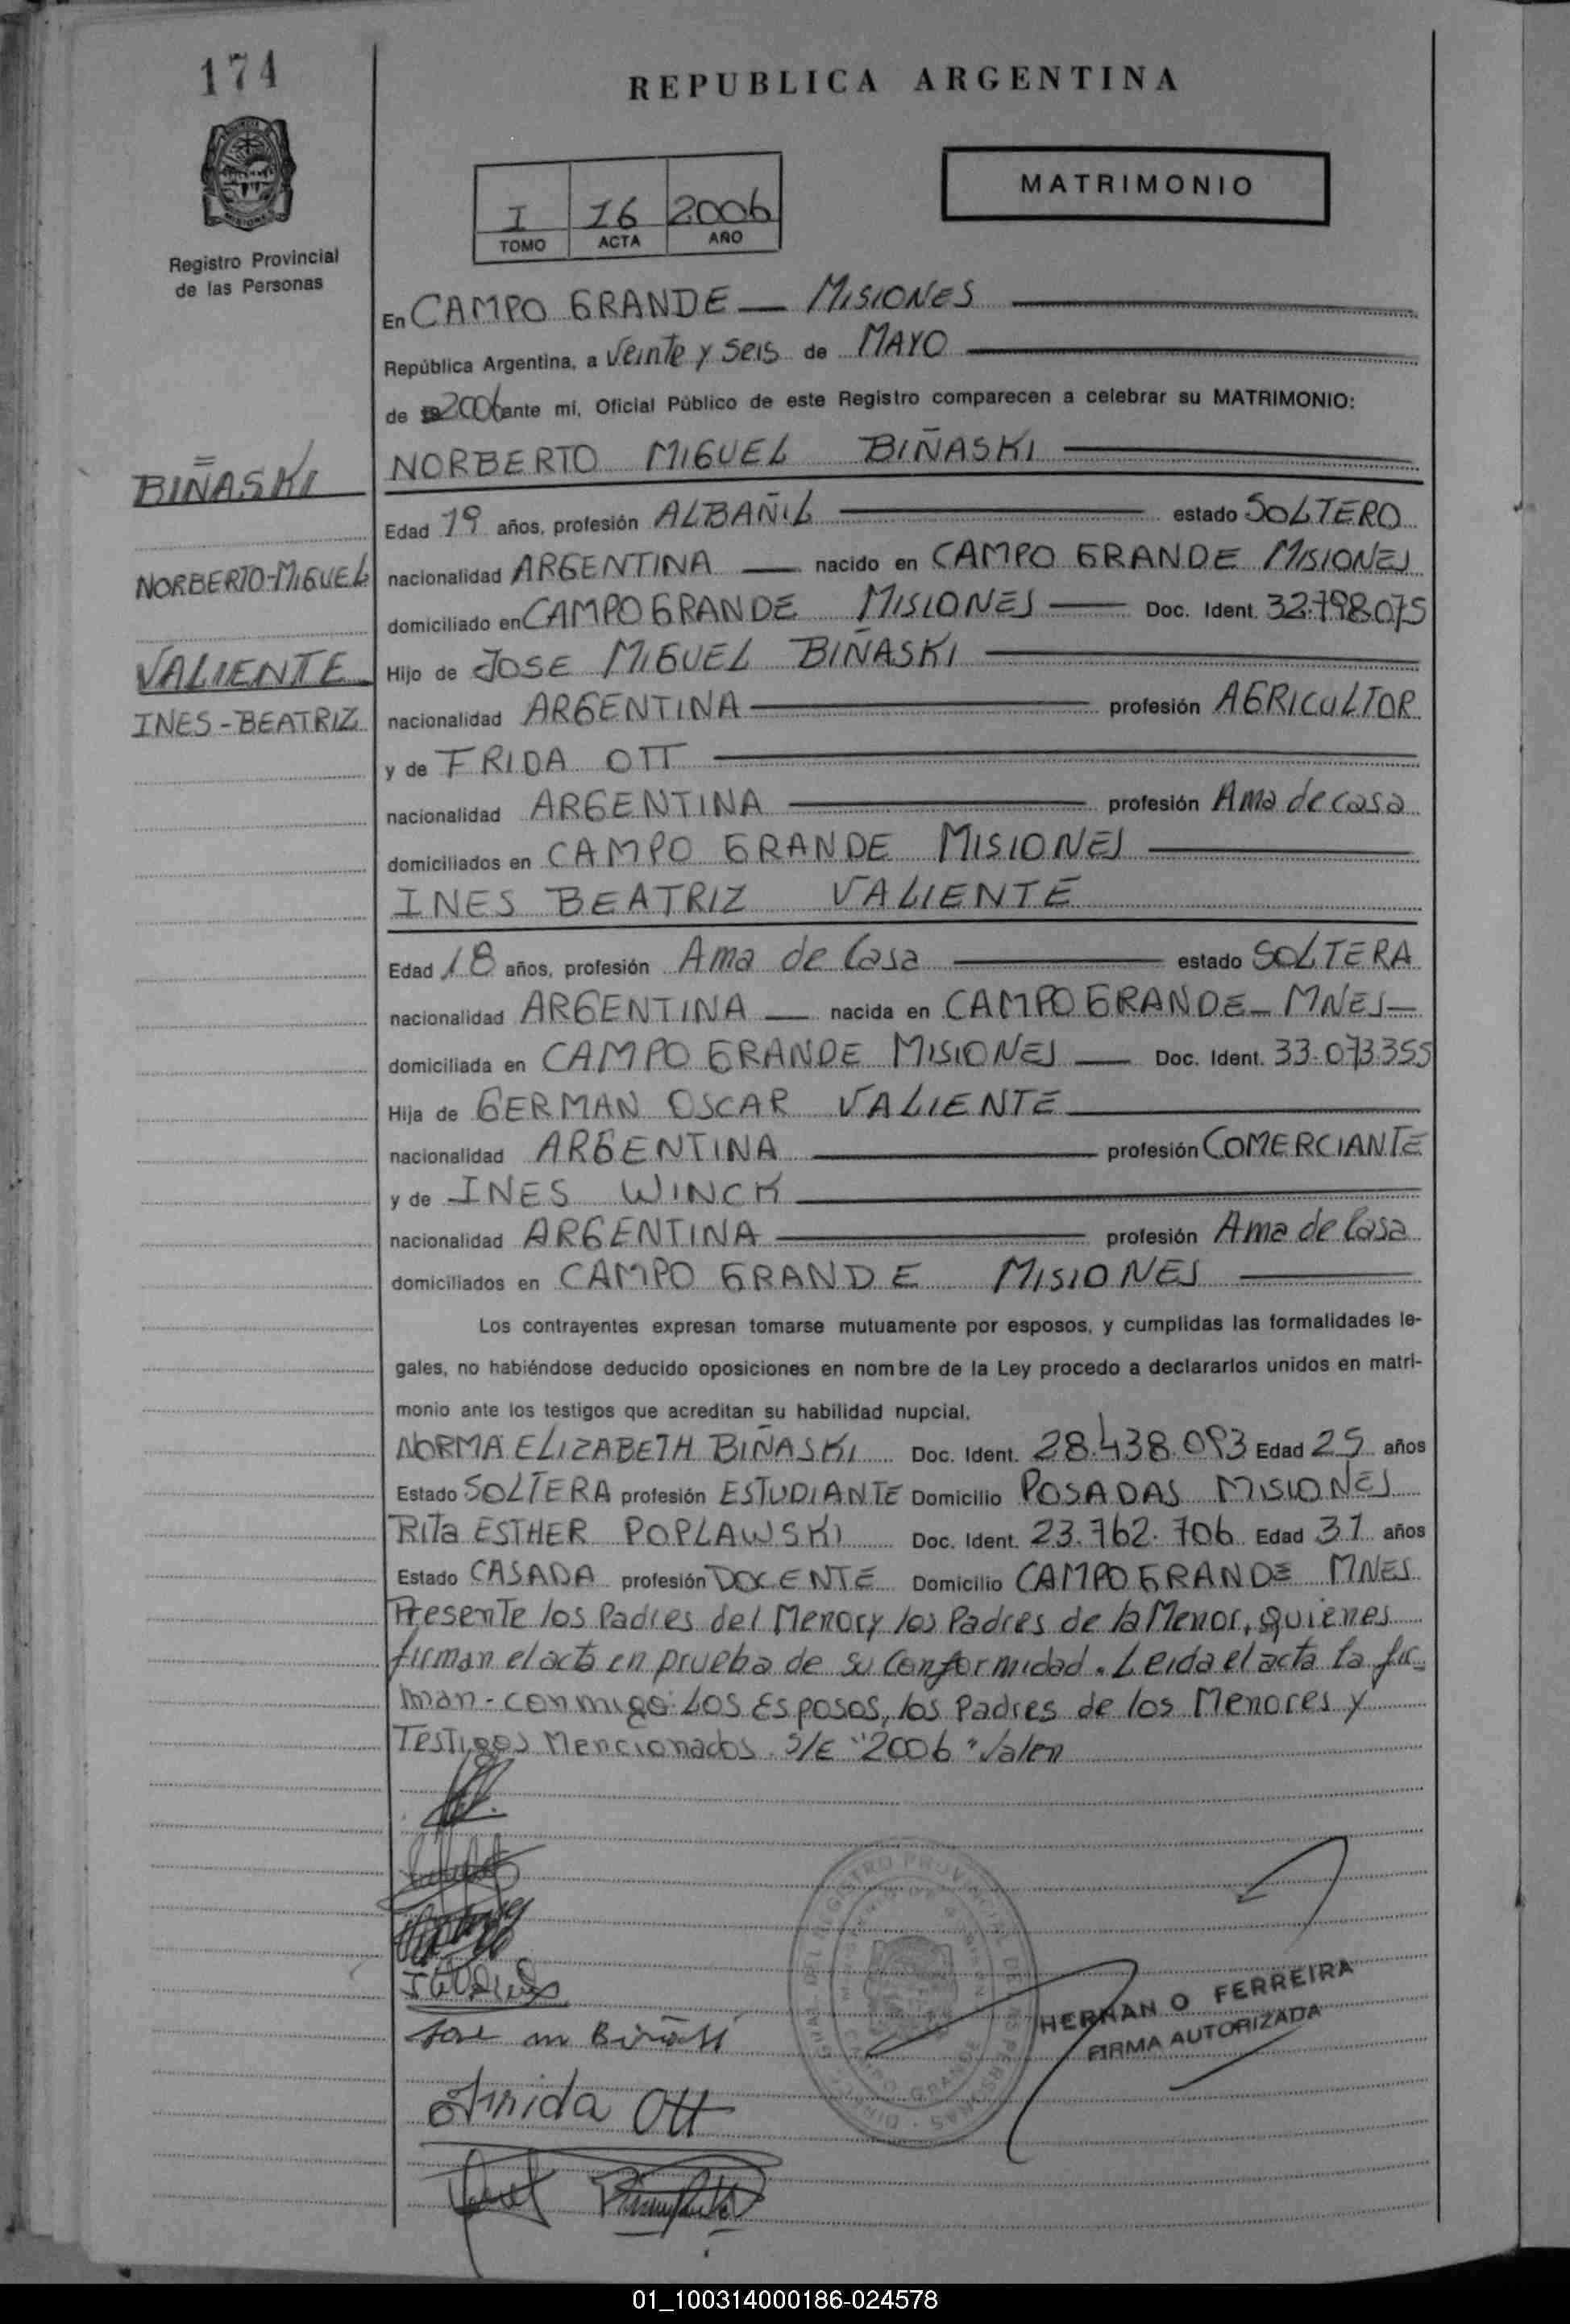 174
REPUBLICA ARGENTINA
MATRIMONIO
I 16 2006
TOMO ACTA AÑO
Registro Provincial
de las Personas
En CAMPO GRANDE — MISIONES
República Argentina, a Veinte y Seis de MAYO
de 2006 ante mí, Oficial Público de este Registro comparecen a celebrar su MATRIMONIO:
BIÑASKI
NORBERTO MIGUEL BIÑASKI
Edad 19 años, profesión ALBAÑIL estado SOLTERO
NORBERTO-MIGUEL
nacionalidad ARGENTINA — nacido en CAMPO GRANDE MISIONES
domiciliado en CAMPO GRANDE MISIONES — Doc. Ident. 32.798.075
VALIENTE
Hijo de JOSE MIGUEL BIÑASKI
INES-BEATRIZ
nacionalidad ARGENTINA profesión AGRICULTOR
y de FRIDA OTT
nacionalidad ARGENTINA profesión Ama de casa
domiciliados en CAMPO GRANDE MISIONES
INES BEATRIZ VALIENTE
Edad 18 años, profesión Ama de Casa estado SOLTERA
nacionalidad ARGENTINA — nacida en CAMPO GRANDE — MNES —
domiciliada en CAMPO GRANDE MISIONES — Doc. Ident. 33.073.355
Hija de GERMAN OSCAR VALIENTE
nacionalidad ARGENTINA profesión COMERCIANTE
y de INES WINCK
nacionalidad ARGENTINA profesión Ama de Casa
domiciliados en CAMPO GRANDE MISIONES
Los contrayentes expresan tomarse mutuamente por esposos, y cumplidas las formalidades le-
gales, no habiéndose deducido oposiciones en nombre de la Ley procedo a declararlos unidos en matri-
monio ante los testigos que acreditan su habilidad nupcial.
NORMA ELIZABETH BIÑASKI Doc. Ident. 28.438.093 Edad 25 años
Estado SOLTERA profesión ESTUDIANTE Domicilio POSADAS MISIONES
Rita ESTHER POPLAWSKI Doc. Ident. 23.762.706 Edad 31 años
Estado CASADA profesión DOCENTE Domicilio CAMPO GRANDE MNES
Presente los Padres del Menor y los Padres de la Menor, quienes
firman el acta en prueba de su Conformidad. Leida el acta la fir-
man - conmigo Los Esposos, los Padres de los Menores y
Testigos Mencionados. S/E "2006" Valen
Jose m Biñaski
Frida Ott
HERNAN O FERREIRA
FIRMA AUTORIZADA
01_100314000186-024578